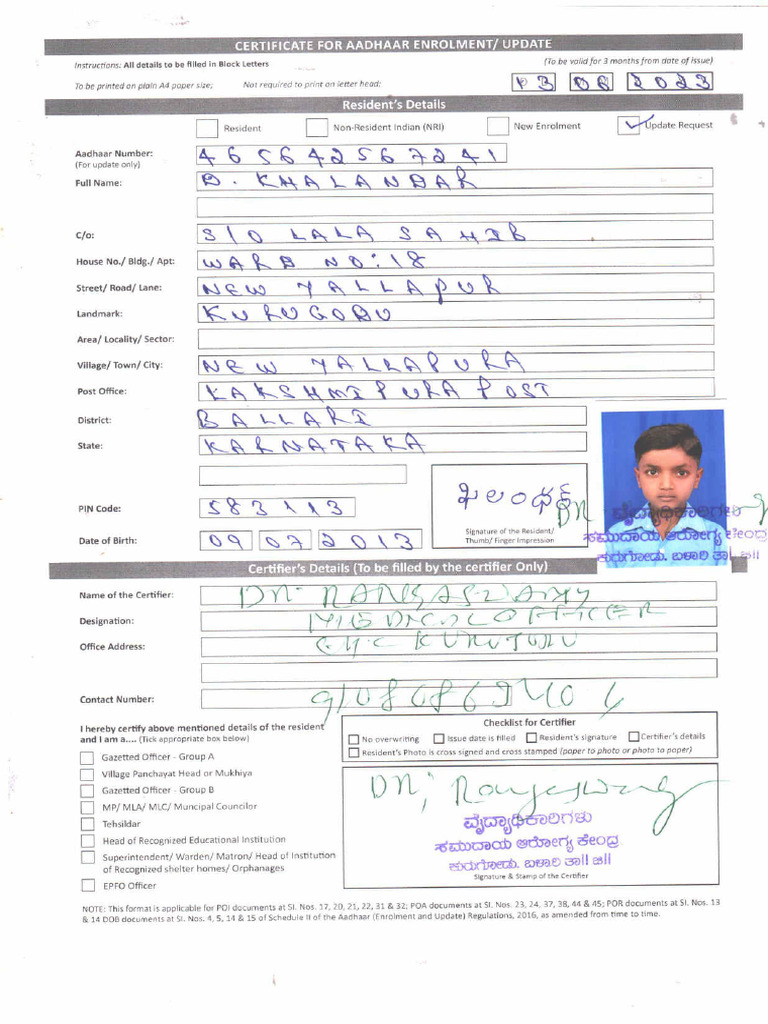 CERTIFICATE FOR AADHAAR ENROLMENT/ UPDATE
Instructions: All details to be filled in Block Letters
(To be valid for 3 months from date of issue)
To be printed on plain A4 paper size; Not required to print on letter head;
Resident's Details
Resident Non-Resident Indian (NRI) New Enrolment Update Request
Aadhaar Number: 465642567241
(For update only)
Full Name: D. KHALANDAR
C/o: S/O LALA SAHIB
House No./ Bldg./ Apt: WARD NO:18
Street/ Road/ Lane: NEW YALLAPUR
Landmark: KURUGODU
Area/ Locality/ Sector:
Village/ Town/ City: NEW YALLAPURA
Post Office: LAKSHMIPURA POST
District: BALLARI
State: KARNATAKA
PIN Code: 583113
Signature of the Resident/
Thumb/ Finger Impression
Date of Birth: 09 07 2013
ವೈದ್ಯಾಧಿಕಾರಿಗಳು
ಸಮುದಾಯ ಆರೋಗ್ಯ ಕೇಂದ್ರ
ಕುರುಗೋಡು. ಬಳಾರಿ ತಾ|| ಜಿ||
Certifier's Details (To be filled by the certifier Only)
Name of the Certifier:
Designation: MEDICAL OFFICER
Office Address:
Contact Number:
I hereby certify above mentioned details of the resident
and I am a.... (Tick appropriate box below)
Gazetted Officer - Group A
Village Panchayat Head or Mukhiya
Gazetted Officer - Group B
MP/ MLA/ MLC/ Muncipal Councilor
Tehsildar
Head of Recognized Educational Institution
Superintendent/ Warden/ Matron/ Head of Institution
of Recognized shelter homes/ Orphanages
EPFO Officer
Checklist for Certifier
No overwriting Issue date is filled Resident's signature Certifier's details
Resident's Photo is cross signed and cross stamped (paper to photo or photo to paper)
ವೈದ್ಯಾಧಿಕಾರಿಗಳು
ಸಮುದಾಯ ಆರೋಗ್ಯ ಕೇಂದ್ರ
ಕುರುಗೋಡು. ಬಳಾರಿ ತಾ|| ಜಿ||
Signature & Stamp of the Certifier
NOTE: This format is applicable for POI documents at Sl. Nos. 17, 20, 21, 22, 31 & 32; POA documents at Sl. Nos. 23, 24, 37, 38, 44 & 45; POR documents at Sl. Nos. 13
& 14 DOB documents at Sl. Nos. 4, 5, 14 & 15 of Schedule II of the Aadhaar (Enrolment and Update) Regulations, 2016, as amended from time to time.